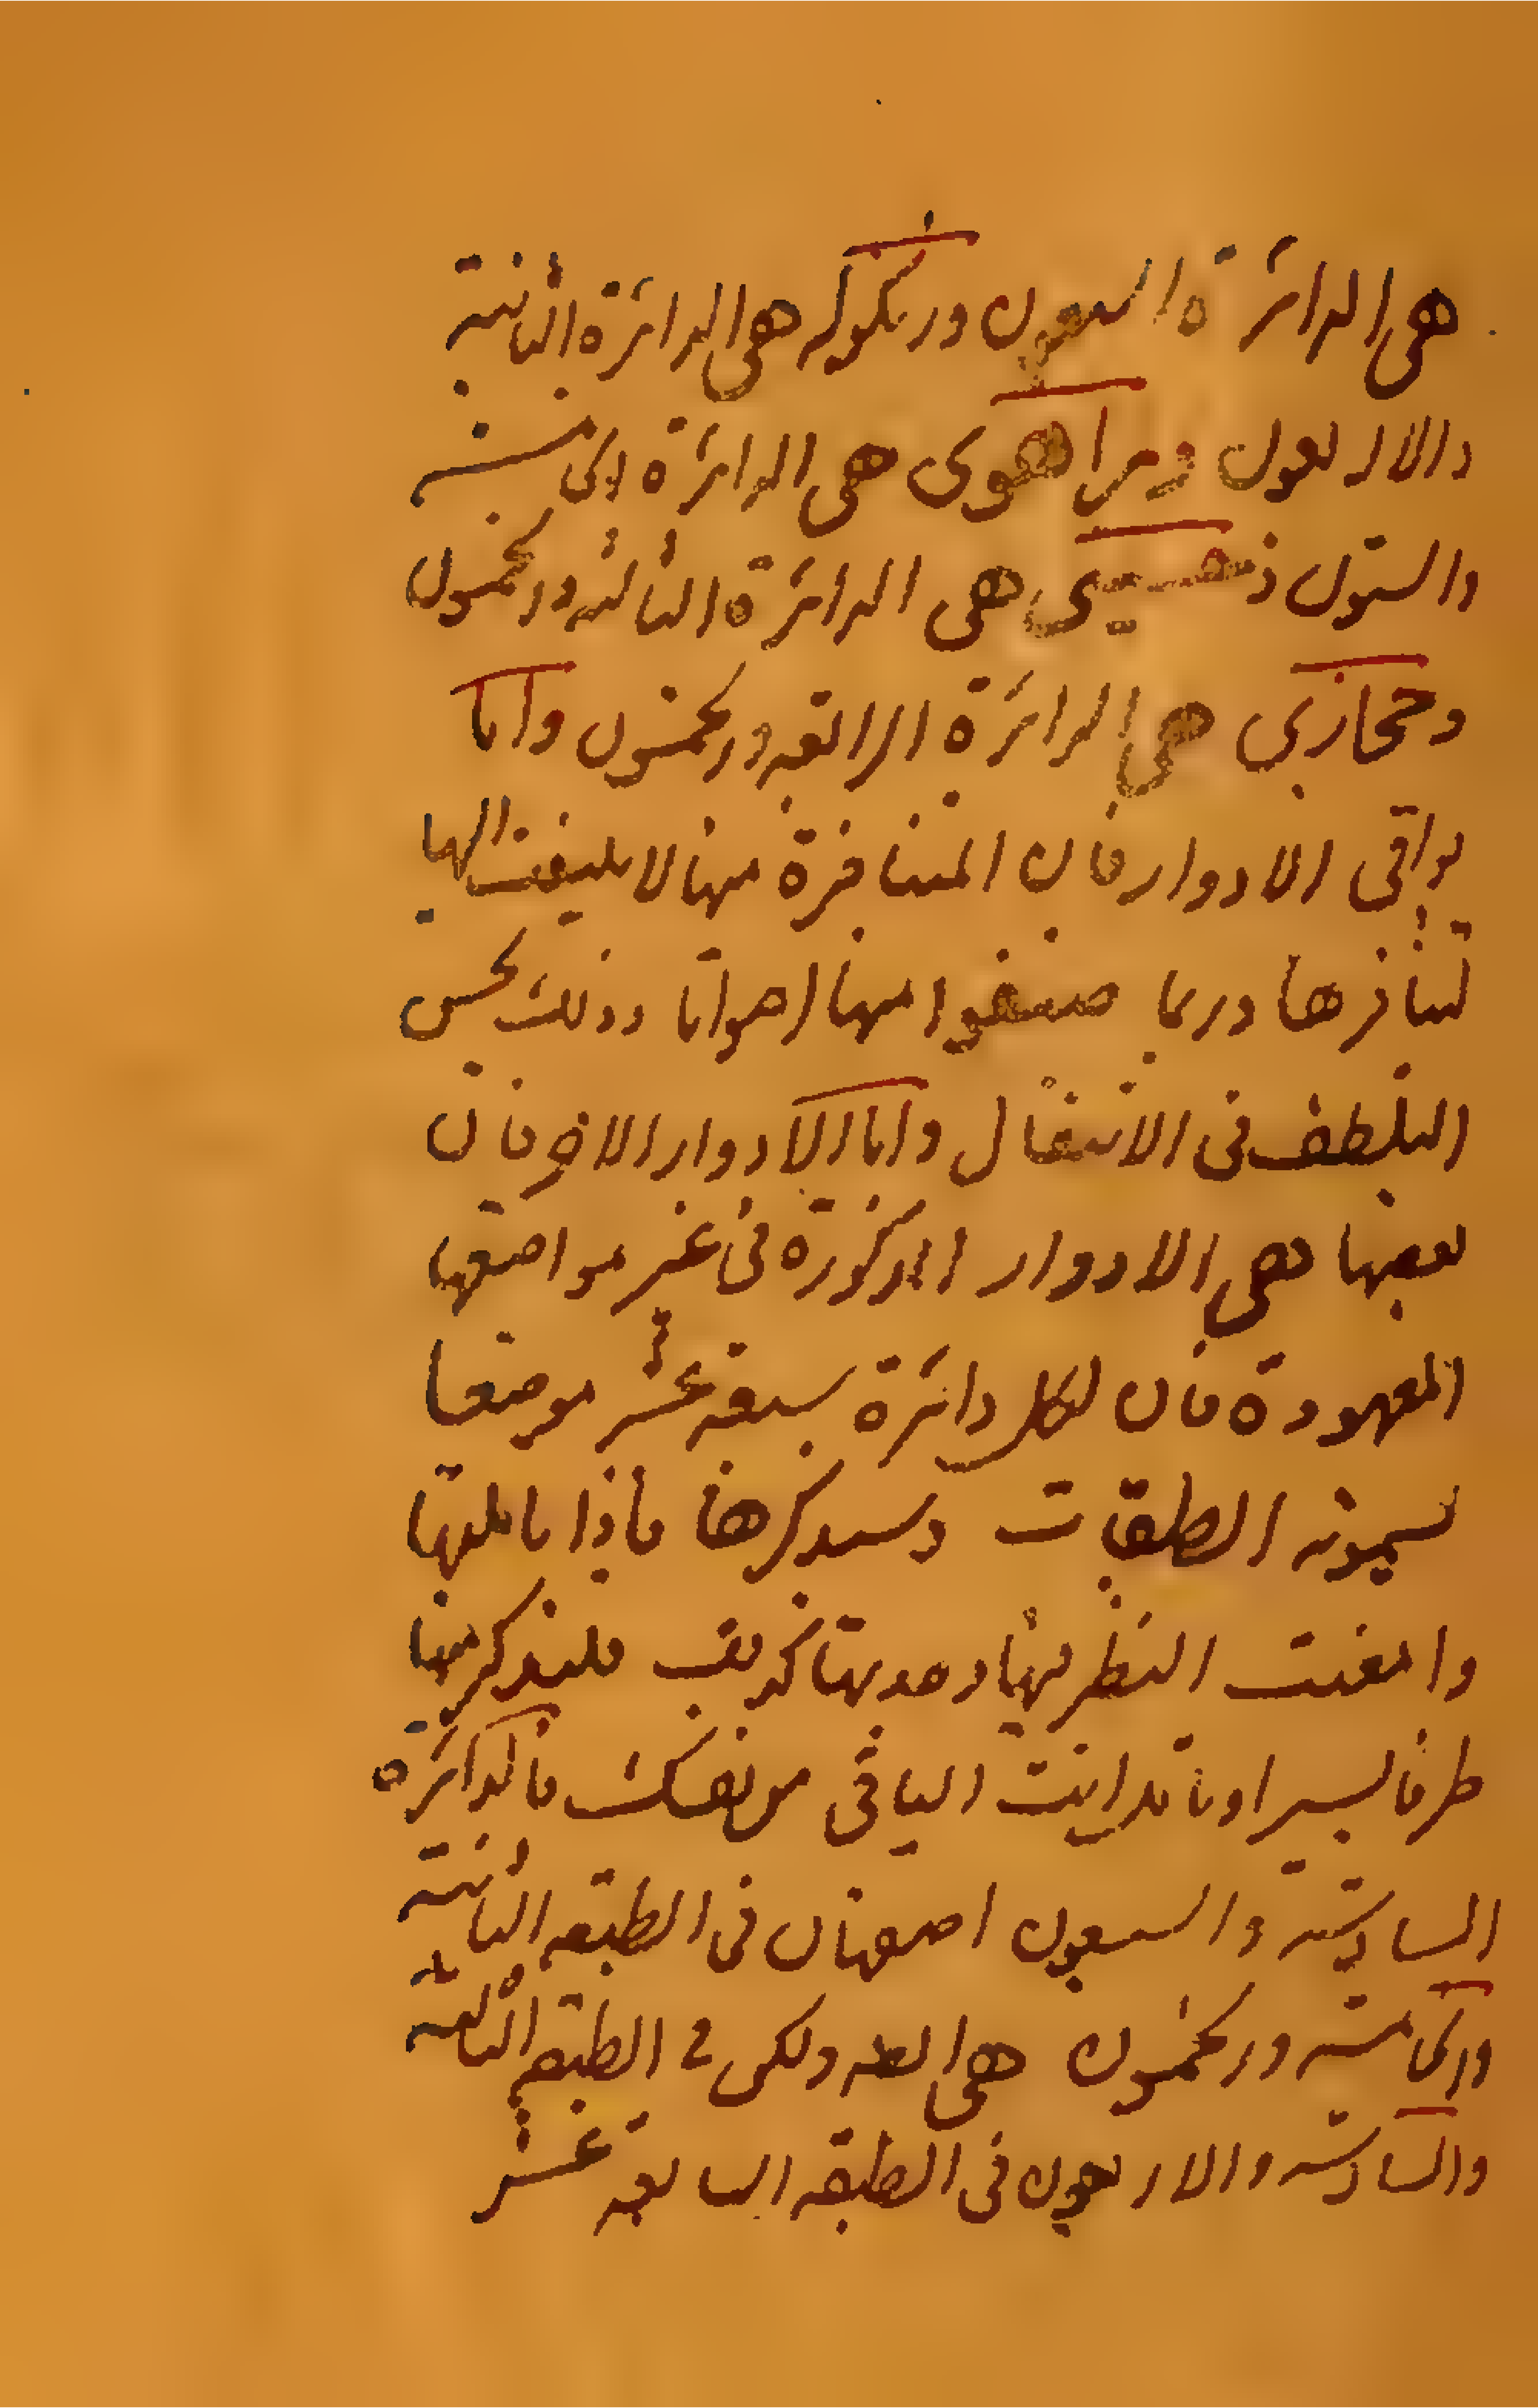 هى الدائرة السبعون وزنكوله هى الدائرة الثانية
والاربعون وراهوى هى الدائرة الخامسة
والستون وحسينى هى الدائرة الثالثة والخمسون
وحجازى هى الدائرة الرابعة والخمسون واما
بواقى الادوار فان المتنافرة منها لا يلتفت اليها
لتنافرها وربما صنفوا منها اصواتا وذلك بحسن
التلطف فى الانتقال واما الادوار الاخر فان
بعضها هى الادوار المذكورة فى غير مواضعها
المعهودة فان لكل دائرة سبعة عشر موضعا
يسمونه الطبقات وسنذكرها فاذا تاملتها
وامعنت النظر فيها وجدتها كذلك فلنذكر منها
طرفا يسيرا وتاتى انت الباقى من نفسك فالدائرة
السادسة والسبعون اصفهان فى الطبقة الثامنة
والخامسة والخمسون هى ولكن فى الطبقة الثالثة
والسادسة والاربعون فى الطبقة السابعة عشر